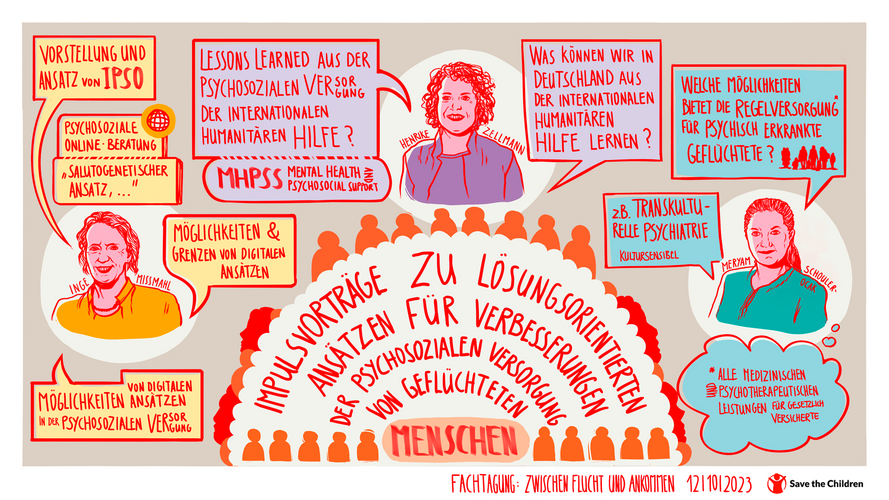 VORSTELLUNG UND
ANSATZ VON IPSO
PSYCHOSOZIALE
ONLINE-BERATUNG
„SALUTOGENETISCHER
ANSATZ, ..."
INGE MISSMAHL
MÖGLICHKEITEN &
GRENZEN VON DIGITALEN
ANSÄTZEN
MÖGLICHKEITEN VON DIGITALEN ANSÄTZEN
IN DER PSYCHOSOZIALEN VERSORGUNG
LESSONS LEARNED AUS DER
PSYCHOSOZIALEN VERSORGUNG
DER INTERNATIONALEN
HUMANITÄREN HILFE?
MHPSS MENTAL HEALTH AND
PSYCHOSOCIAL SUPPORT
HENRIKE ZELLMANN
WAS KÖNNEN WIR IN
DEUTSCHLAND AUS
DER INTERNATIONALEN
HUMANITÄREN
HILFE LERNEN?
WELCHE MÖGLICHKEITEN
BIETET DIE REGELVERSORGUNG*
FÜR PSYCHISCH ERKRANKTE
GEFLÜCHTETE?
Z.B. TRANSKULTU-
RELLE PSYCHIATRIE
KULTURSENSIBEL
MERYAM SCHOULER-
OCAK
* ALLE MEDIZINISCHEN
UND PSYCHOTHERAPEUTISCHEN
LEISTUNGEN FÜR GESETZLICH
VERSICHERTE
IMPULSVORTRÄGE ZU LÖSUNGSORIENTIERTEN
ANSÄTZEN FÜR VERBESSERUNGEN
DER PSYCHOSOZIALEN VERSORGUNG
VON GEFLÜCHTETEN
MENSCHEN
FACHTAGUNG: ZWISCHEN FLUCHT UND ANKOMMEN 12|10|2023 Save the Children